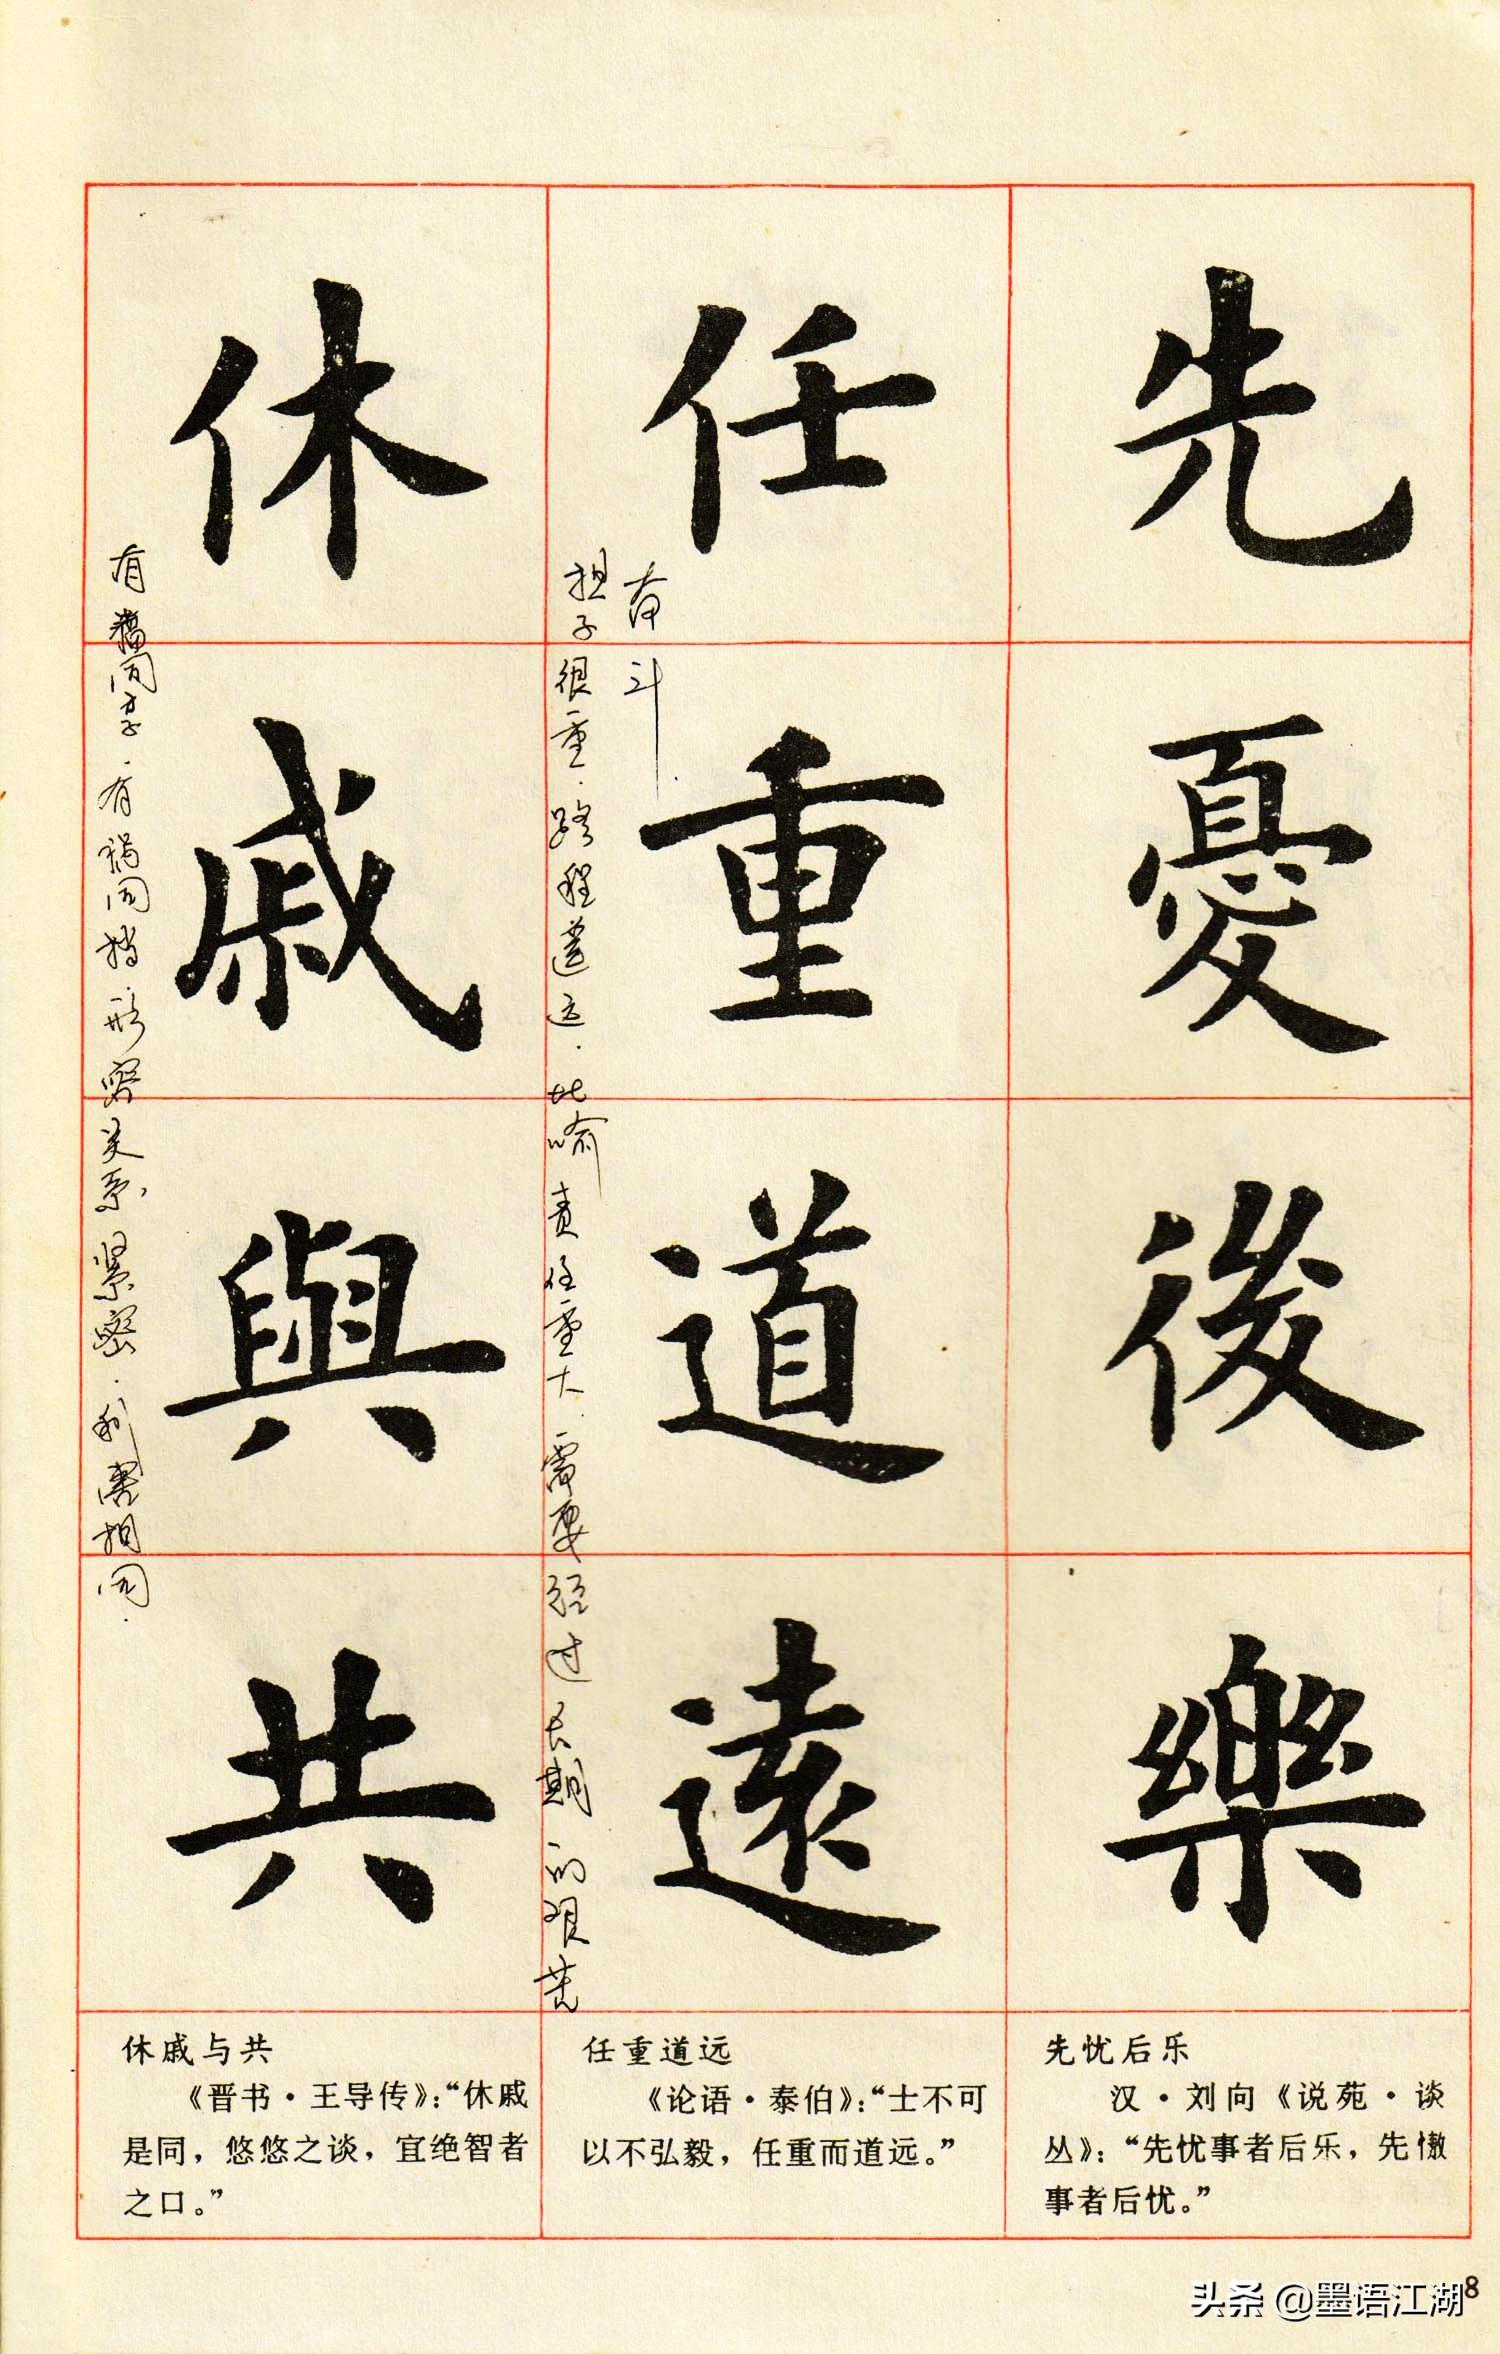 先憂後樂
任重道遠
担子很重.路程遥远.比喻责任重大.需要经过长期的艰苦
奋斗.
休戚與共
有福同享.有祸同挡.形容关系,紧密.利害相同.
先忧后乐
汉·刘向《说苑·谈
丛》：“先忧事者后乐，先慠
事者后忧。”
任重道远
《论语·泰伯》：“士不可
以不弘毅，任重而道远。”
休戚与共
《晋书·王导传》：“休戚
是同，悠悠之谈，宜绝智者
之口。”
8
头条 @墨语江湖